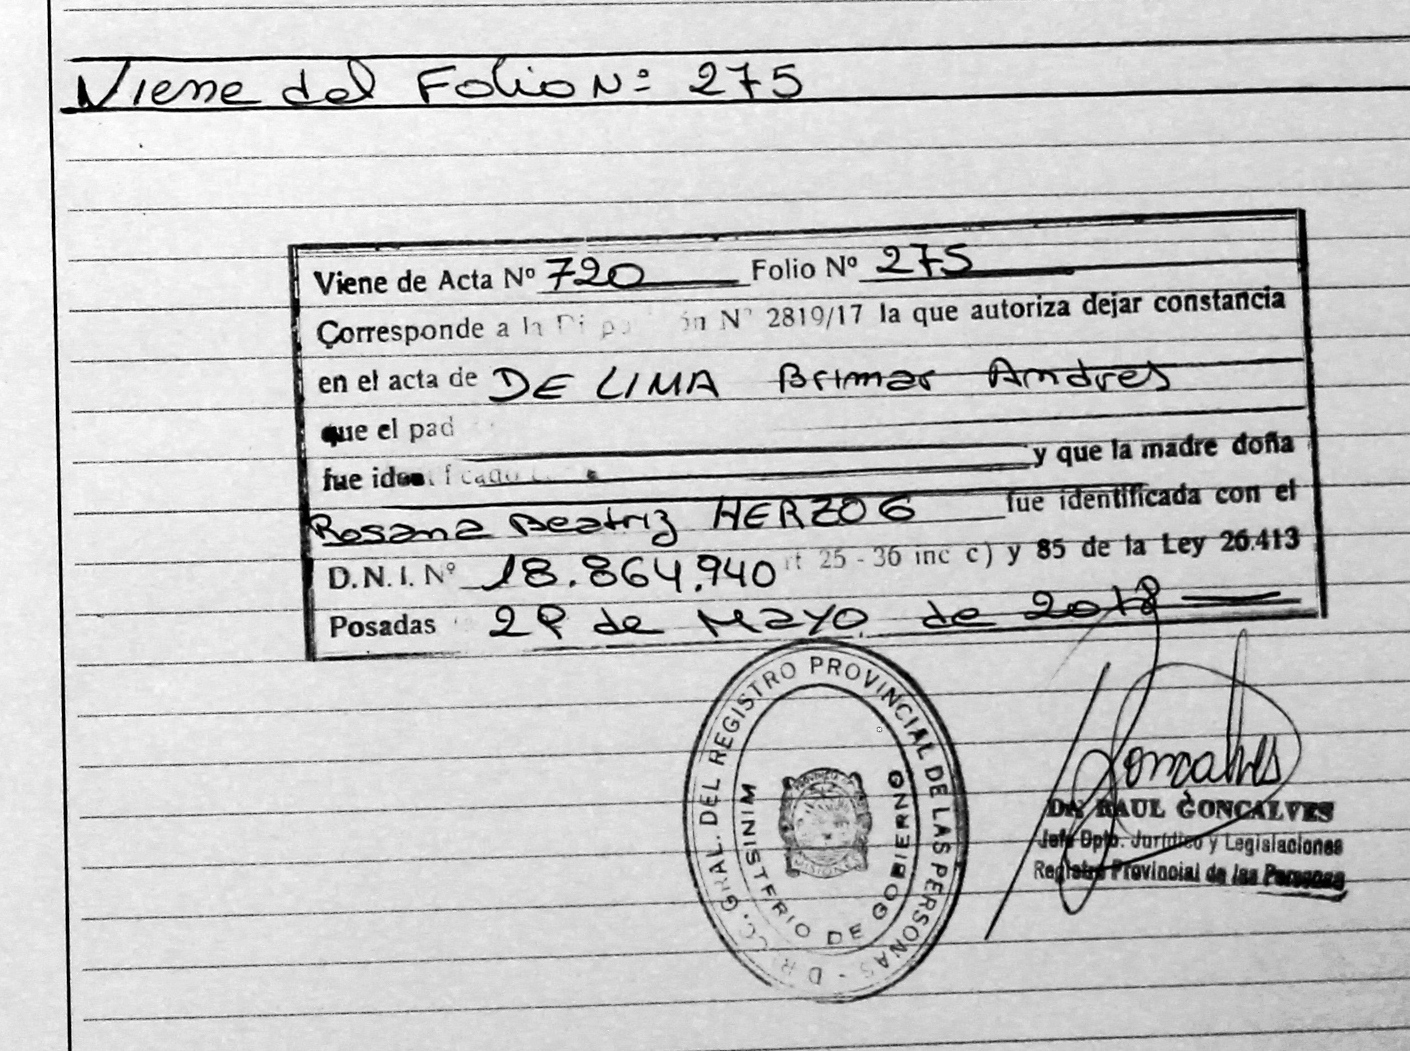 Viene del Folio Nº 275
Viene de Acta Nº 720 Folio Nº 275
Corresponde a la Nº 2819/17 la que autoriza dejar constancia
en el acta de DE LIMA Brimar Andres
que el pad
fue identificado y que la madre doña
Rosana Beatriz HERZOG fue identificada con el
D.N.I. Nº 18.864.940 rt 25 - 36 inc c) y 85 de la Ley 26.413
Posadas 29 de Mayo de 2018
GRAL. DEL REGISTRO PROVINCIAL DE LAS PERSONAS
MINISTERIO DE GOBIERNO
MISIONES
Goncalves
DR. RAUL GONCALVES
Jefe Dpto. Jurídico y Legislaciones
Registro Provincial de las Personas